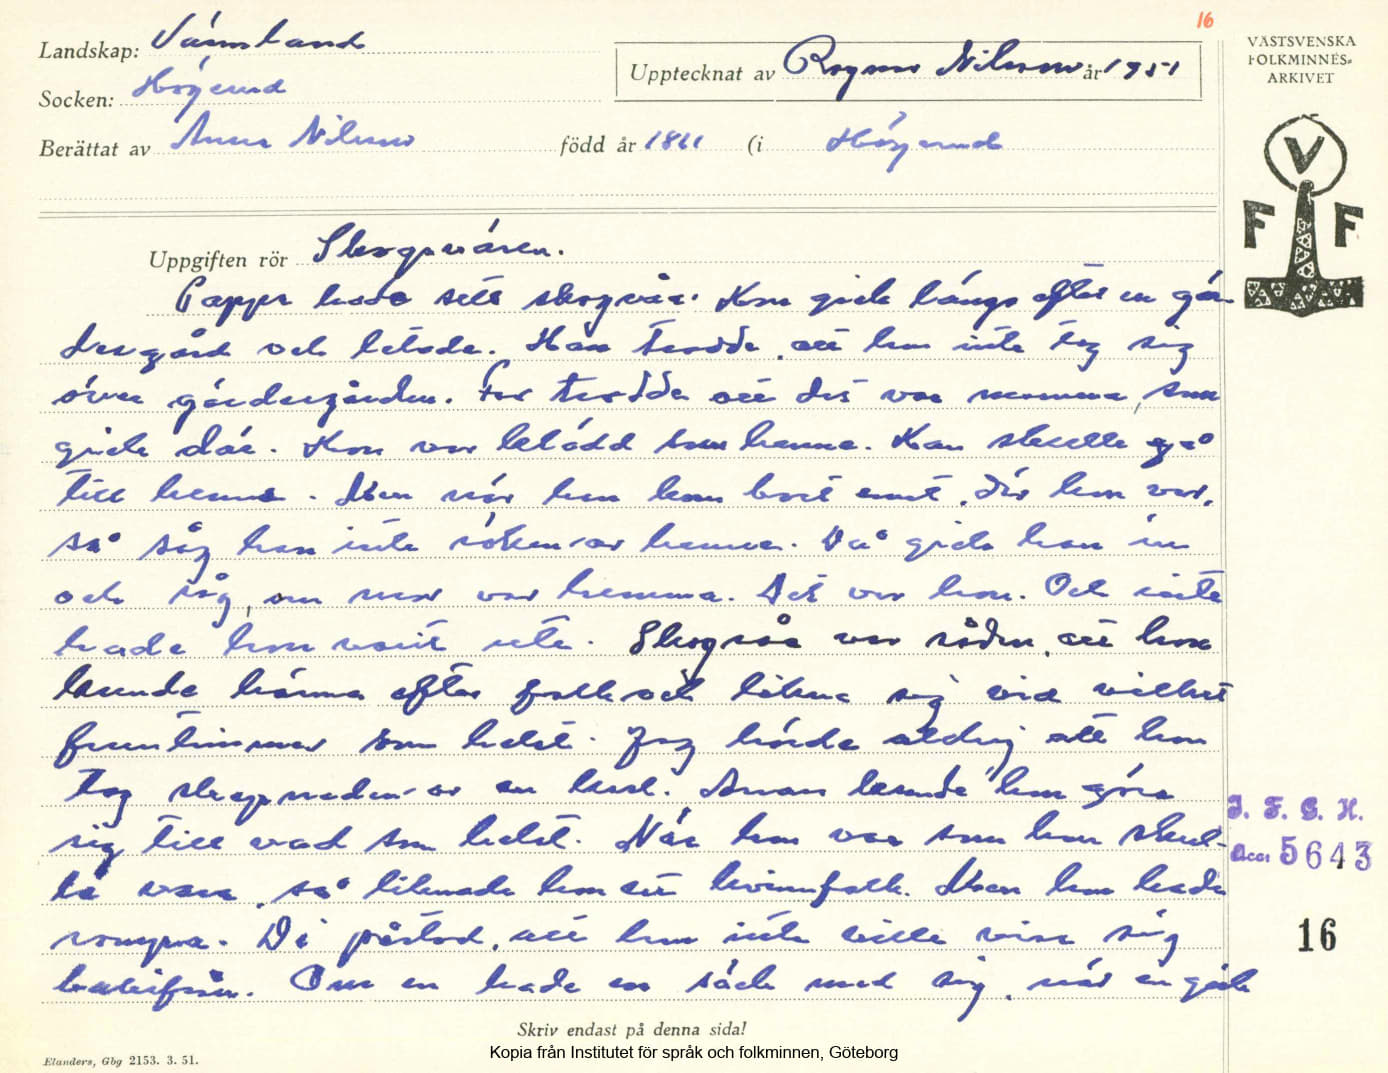 16
Landskap: Värmland
Upptecknat av Ragnar Nilsson år 1951
VÄSTSVENSKA
FOLKMINNES-
ARKIVET
Socken: Högerud
Berättat av Anna Nilsson född år 1861 (i Högerud
V
F F
Uppgiften rör Skogsråen.
Pappa hade sett skogsråa. Hon gick längs efter en gär-
desgård och letade. Han trodde, att hon inte tog sig
över gärdesgården. Far trodde att det var mamma, som
gick där. Hon var klädd som henne. Han skulle gå
till henne. Men när han kom bort emot, där hon var,
så såg han inte röken av henne. Då gick han in
och såg, om mor var hemma. Det var hon. Och inte
hade hon varit ute. Skogsråa var sådan, att hon
kunde härma efter folk och likna sig vid vilket
fruntimmer som helst. Jag hörde aldrig att hon
tog skepnaden av en karl. Annars kunde hon göra
sig till vad som helst. När hon var som hon skul-
le vara, så liknade hon ett kvinnfolk. Men hon hade
rompa. Di påstod, att hon inte ville visa sig
bakifrån. Om en hade en säck med sig, när en gick
I. F. G. H.
Acc: 5643
16
Skriv endast på denna sida!
Kopia från Institutet för språk och folkminnen, Göteborg
Elanders, Gbg 2153. 3. 51.